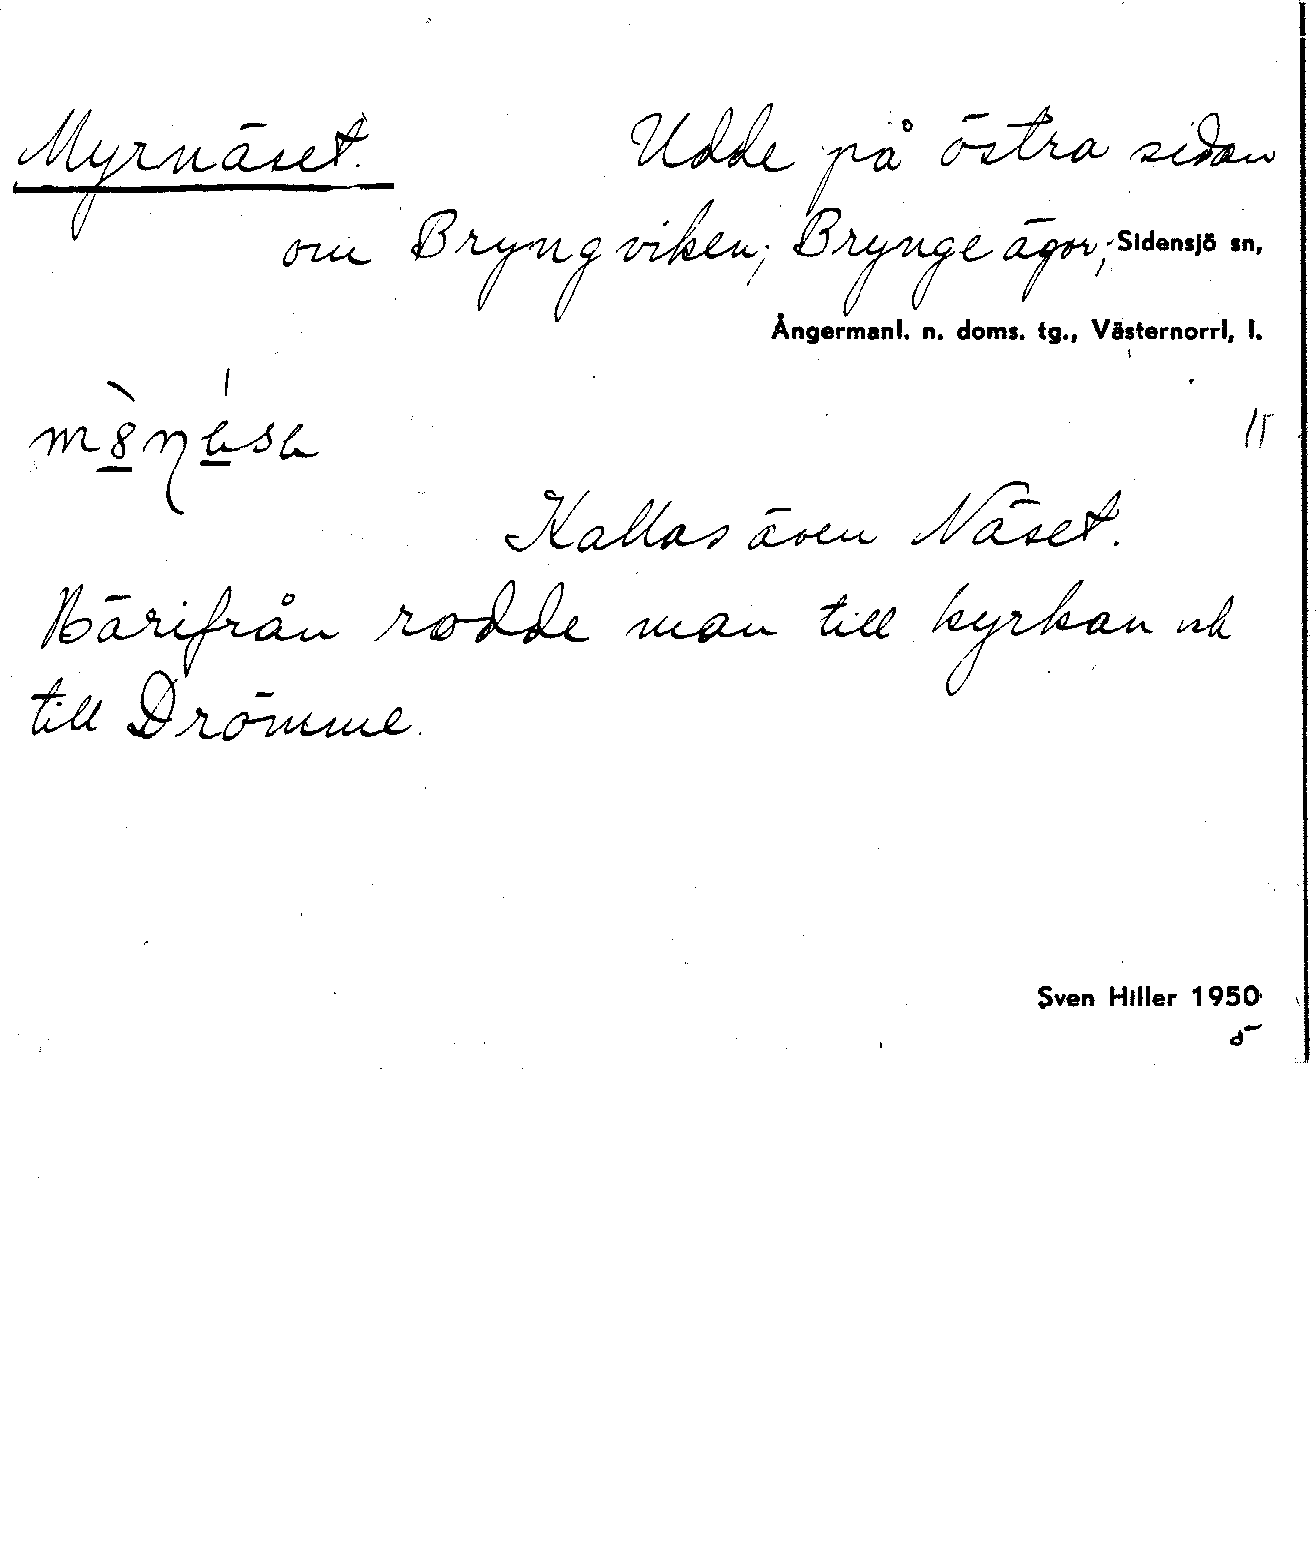 Myrnäset. Udde på östra sidan
om Bryngviken; Brynge ägor; Sidensjö sn,
Ångermanl. n. doms. tg., Västernorrl, l.
Kallas även Näset.
Härifrån rodde man till kyrkan och
till Drömme.
Sven Hiller 1950